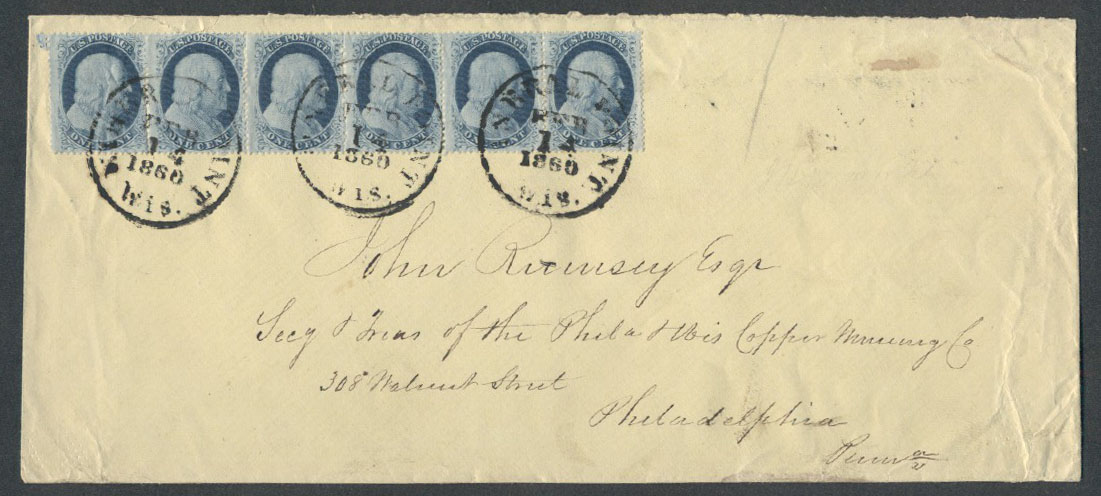 U.S. POSTAGE U.S. POSTAGE U.S. POSTAGE U.S. POSTAGE U.S. POSTAGE U.S. POSTAGE
ONE CENT ONE CENT ONE CENT ONE CENT ONE CENT ONE CENT
MINERAL POINT FEB 14 1860 WIS.
MINERAL POINT FEB 14 1860 WIS.
MINERAL POINT FEB 14 1860 WIS.
John Rumsey Esqr
Secy & Treas of the Phila & Wis Copper Mining Co
308 Walnut Street
Philadelphia
Penna